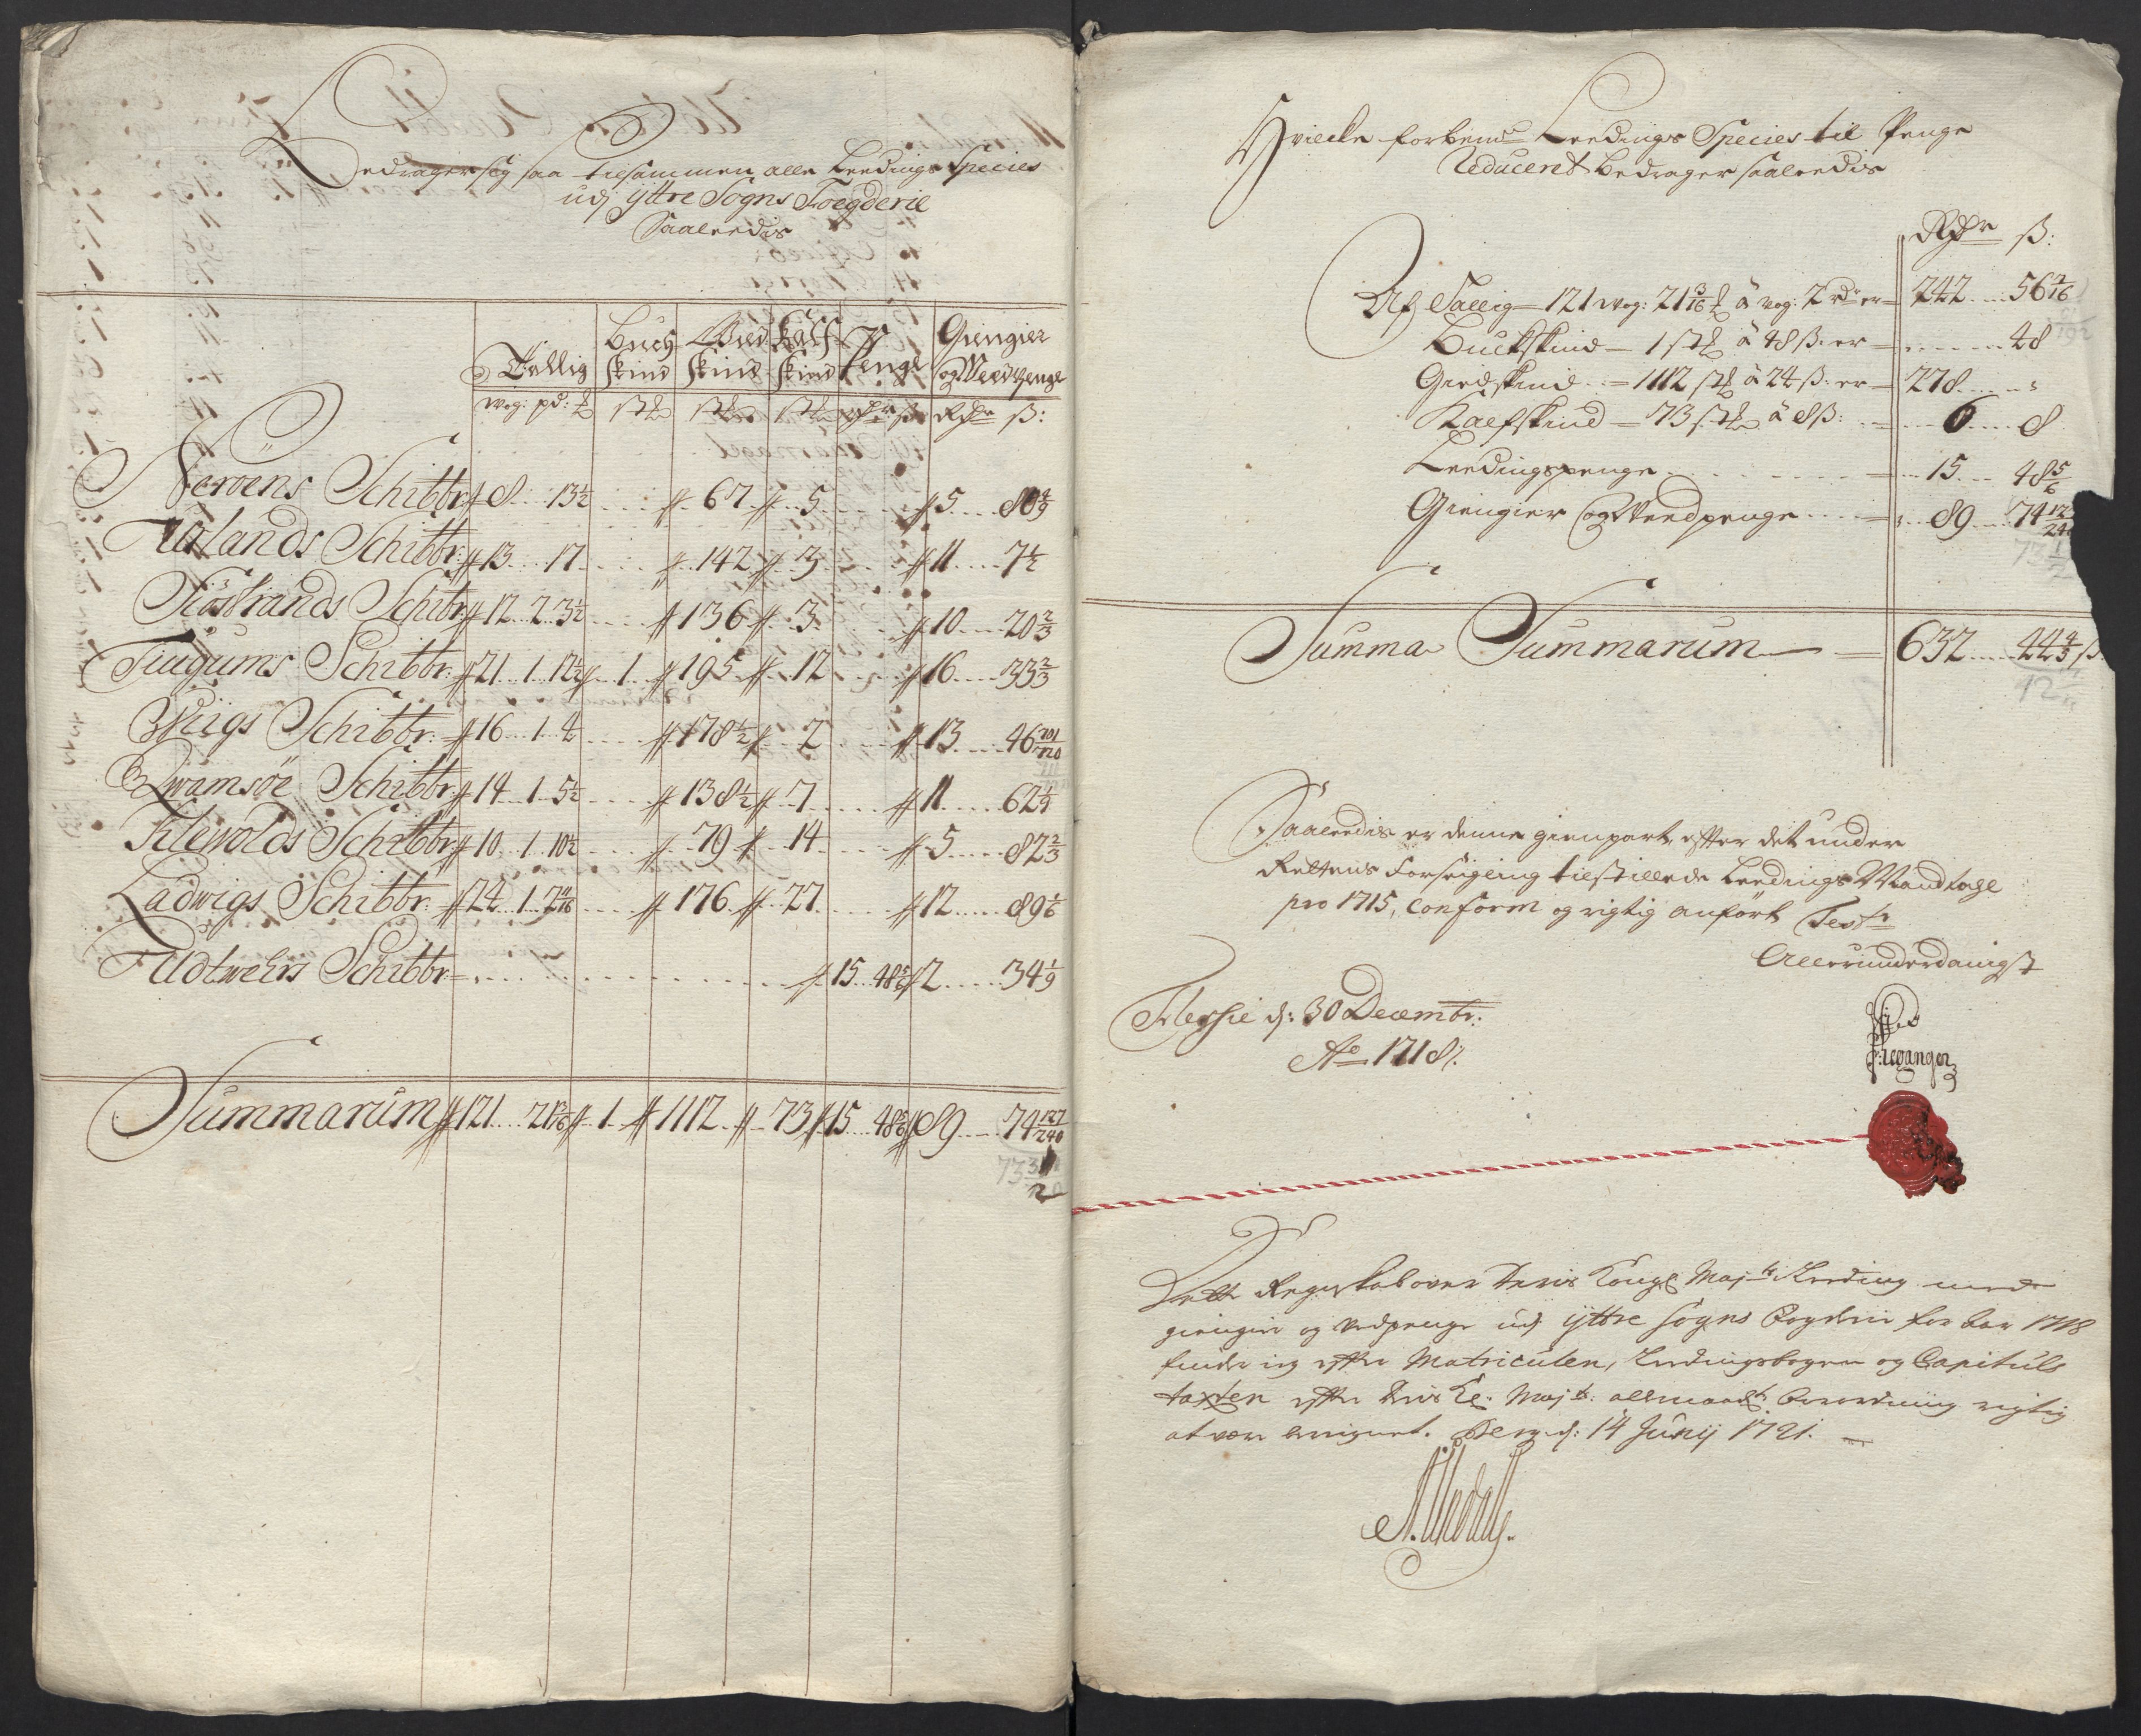 Bedrager sig saa tilsammen alle Leedings Species
udj Yttre Sogns Foegderie
Saaleedis
Tallig Buch skind Gied skind Kalf skind Penge Giengier og Weedpenge
wog: pd: Rdr ß:
Schibbr: 8 13½ 67 5 5 80 4/9
Urlands Schibbr: 13 17 142 3 11 7½
Schibbr: 12 2 3½ 136 3 10 20⅔
Tiugums Schibbr: 21 1 12½ 1 195 12 16 33⅔
Wiigs Schibbr: 16 1 4 178½ 2 13 46 101/720
Qwamsöe Schibbr: 14 1 5½ 138½ 7 11 62 4/9
Klewolds Schibbr: 10 1 10½ 79 14 5 82⅔
Ladwigs Schibbr: 24 1 176 27 12 89⅙
Udtwehrs Schibbr: 15 48⅚ 2 34 1/9
Summarum 121 21 3/16 1 1112 73 15 48⅚ 89 74 127/240
73
Hvilcke forbemte Leedings Species til Penge
Reduceret bedrager saaleedis
Rdr ß:
Af Tallig 121 wog: 21 3/16 à wog: 2 rdr er 242 56
Buckskind 1 st à 48 ß: er 48
Giedskind 1112 st à 24 ß: er 278
Kalfskind 73 st à 8 ß: 6 8
Leedingspenge 15 48⅚
Giengier og Weedpenge 89 74
Summa Summarum 632 44 ß
Saaleedis er denne gienpart, efter det under
Rettens Forseigling tilstillede Leedings Mandtall
pro 1715, Conform og rigtig anfört Test:
Allerunderdanigst
d: 30 Decembr:
Ao 1718
Dette Regenskab over Deris Kongl: Majts: Leeding med
giengier og vedpenge udj yttre Sogns fogderie for Aar 1718
finder ieg efter Matriculen, Leedingsbogen og Capituls
taxten efter Deris Kl: Majts: allernaadt forordning rigtig
at være beregnet. Berg: d: 14 Junij 1721.